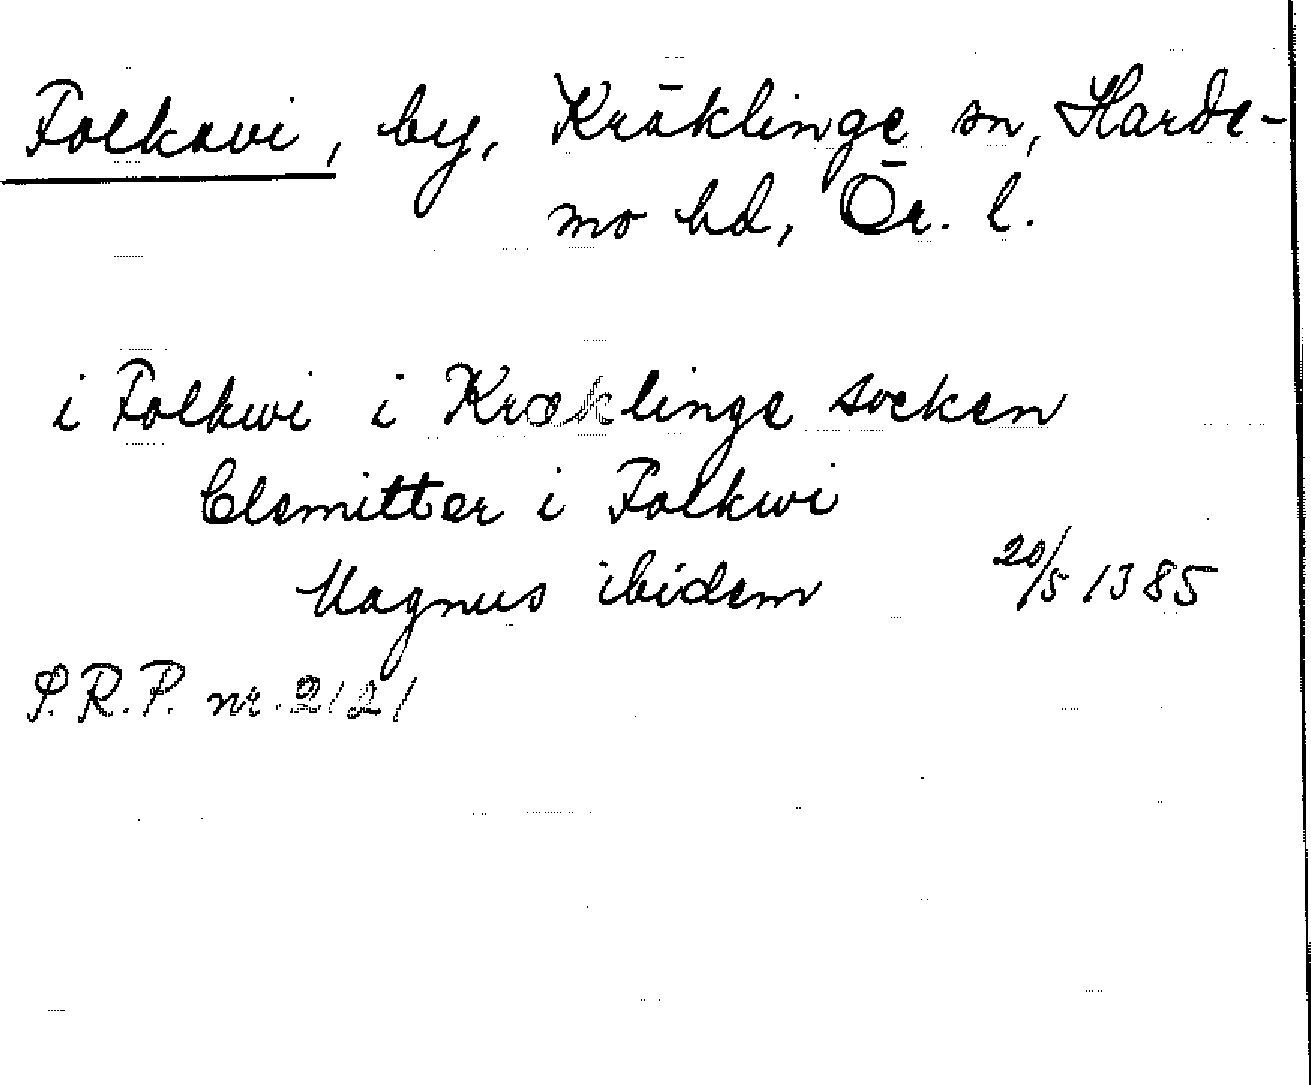 Folkavi, by, Kräklinge sn, Harde-
mo hd, Ör. l.
i Folkwi i Kræklinge socken
Clemitter i Folkwi
Magnus ibidem 20/5 1385
S.R.P. nr. 2121